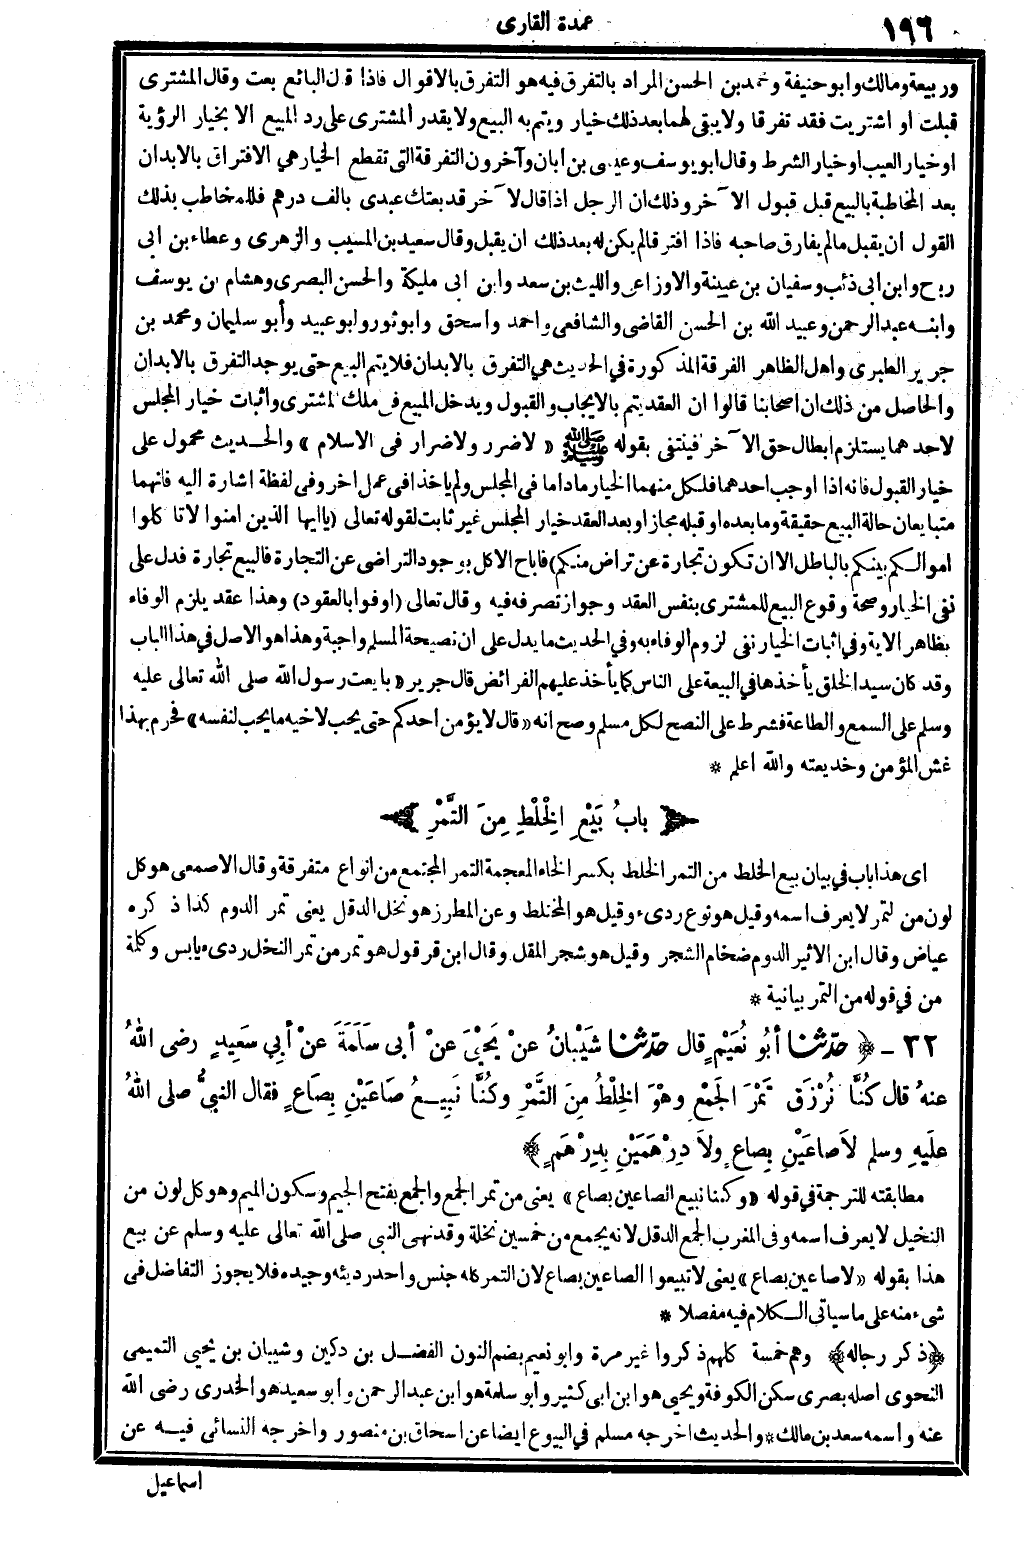 ١٩٦
عمدة القارى
وربيعة ومالك وابو حنيفة ومحمد بن الحسن المراد بالتفرق فيه هو التفرق بالاقوال فاذا قال البائع بعت وقال المشترى
قبلت او اشتريت فقد تفرقا ولا يبقى لهما بعد ذلك خيار ويتم به البيع ولا يقدر المشترى على رد المبيع الا بخيار الرؤية
او خيار العيب او خيار الشرط وقال ابو يوسف وعيسى بن ابان وآخرون التفرقة التى تقطع الخيار هي الافتراق بالابدان
بعد المخاطبة بالبيع قبل قبول الآخر وذلك ان الرجل اذا قال لآخر قد بعتك عبدى بالف درهم فللمخاطب بذلك
القول ان يقبل مالم يفارق صاحبه فاذا افترقا لم يكن له بعد ذلك ان يقبل وقال سعيد بن المسيب والزهرى وعطاء بن ابى
رباح وابن ابى ذئب وسفيان بن عيينة والاوزاعى والليث بن سعد وابن ابى مليكة والحسن البصرى وهشام بن يوسف
وابنه عبد الرحمن وعبيد الله بن الحسن القاضى والشافعى واحمد واسحق وابو ثور وابو عبيد وأبو سليمان ومحمد بن
جرير الطبرى واهل الظاهر الفرقة المذكورة في الحديث هي التفرق بالابدان فلا يتم البيع حتى يوجد التفرق بالابدان
والحاصل من ذلك ان اصحابنا قالوا ان العقد يتم بالايجاب والقبول ويدخل المبيع فى ملك المشترى واثبات خيار المجلس
لاحدهما يستلزم ابطال حق الآخر فينتفى بقوله ﷺ « لاضرر ولاضرار فى الاسلام » والحديث محمول على
خيار القبول فانه اذا اوجب احدهما فلكل منهما الخيار ماداما فى المجلس ولم ياخذا فى عمل اخر وفى لفظة اشارة اليه فانهما
متبايعان حالة البيع حقيقة وما بعده او قبله مجاز او بعد العقد خيار المجلس غير ثابت لقوله تعالى (ياايها الذين امنوا لاتاكلوا
اموالكم بينكم بالباطل الا ان تكون تجارة عن تراض منكم) فاباح الاكل بوجود التراضى عن التجارة فالبيع تجارة فدل على
نفى الخيار وصحة وقوع البيع للمشترى بنفس العقد وجواز تصرفه فيه وقال تعالى (اوفوا بالعقود) وهذا عقد يلزم الوفاء
بظاهر الاية وفي اثبات الخيار نفى لزوم الوفاء به وفي الحديث ما يدل على ان نصيحة المسلم واجبة وهذا هو الاصل في هذا الباب
وقد كان سيد الخلق يأخذها في البيعة على الناس كما يأخذ عليهم الفرائض قال جرير « بايعت رسول الله صلى الله تعالى عليه
وسلم على السمع والطاعة فشرط على النصح لكل مسلم وصح انه « قال لا يؤمن احدكم حتى يحب لاخيه ما يحب لنفسه» فحرم بهذا
غش المؤمن وخديعته والله أعلم *
باب بَيْعِ الخِلْطِ مِنَ التَّمْرِ
اى هذا باب في بيان بيع الخلط من التمر الخلط بكسر الخاء المعجمة التمر المجتمع من انواع متفرقة وقال الاصمعى هو كل
لون من التمر لا يعرف اسمه وقيل هو نوع ردىء وقيل هو المختلط وعن المطرز هو نخل الدقل يعنى تمر الدوم كذا ذكره
عياض وقال ابن الاثير الدوم ضخام الشجر وقيل هو شجر المقل وقال ابن قرقول هو تمر من تمر النخل ردىء يابس وكلمة
من في قوله من التمر بيانية *
٣٢ ـ ﴿ حدّثنا أبُو نُعَيْمٍ قال حدّثنا شَيْبَانُ عنْ يَحْيَى عنْ أبى سَلَمَةَ عنْ أبِي سَعِيدٍ رضى اللهُ
عنهُ قال كُنَّا نُرْزَقُ تَمْرَ الجَمْعِ وهْوَ الخِلْطُ مِنَ التَّمْرِ وكُنَّا نَبِيعُ صَاعَيْنِ بِصَاعٍ فقال النبيُّ صلى اللهُ
عليهِ وسلم لاَ صاعَيْنِ بِصاعٍ ولاَ دِرْهَمَيْنِ بِدِرْهَمٍ ﴾
مطابقته للترجمة في قوله « وكنا نبيع الصاعين بصاع » يعنى من تمر الجمع والجمع بفتح الجيم وسكون الميم وهو كل لون من
النخيل لا يعرف اسمه وفى المغرب الجمع الدقل لانه يجمع من خمسين نخلة وقد نهى النبى صلى الله تعالى عليه وسلم عن بيع
هذا بقوله « لاصاعين بصاع » يعنى لا تبيعوا الصاعين بصاع لان التمر كله جنس واحد رديئه وجيده فلا يجوز التفاضل فى
شىء منه على ما سياتى الكلام فيه مفصلا *
﴿ذكر رجاله﴾ وهم خمسة كلهم ذكروا غير مرة وابو نعيم بضم النون الفضل بن دكين وشيبان بن يحيى التميمى
النحوى اصله بصرى سكن الكوفة ويحيى هو ابن ابى كثير وابو سلمة هو ابن عبد الرحمن وابو سعيد هو الخدرى رضى الله
عنه واسمه سعد بن مالك * والحديث اخرجه مسلم في البيوع ايضا عن اسحاق بن منصور واخرجه النسائى فيه عن
اسماعيل